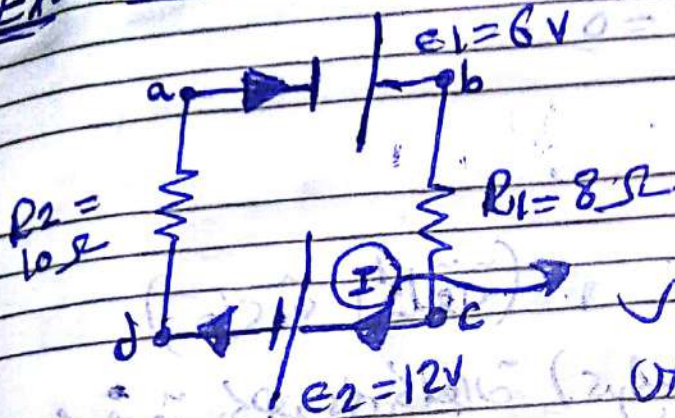 Ex
ε1 = 6 V
a
b
R2 =
10 Ω
R1 = 8 Ω
I
d
c
ε2 = 12V